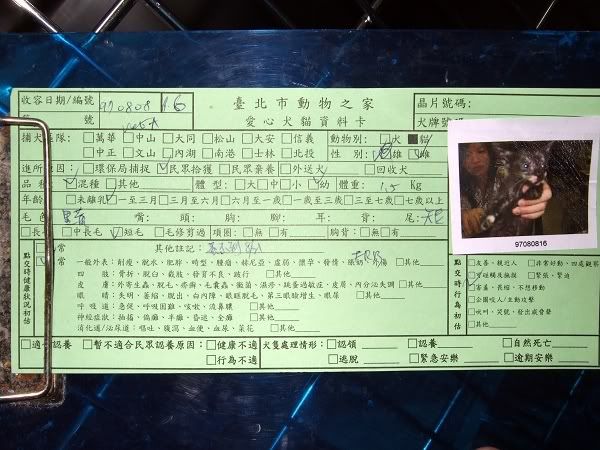 收容日期/編號 970808 16 臺北市動物之家 晶片號碼:
號 愛心犬貓資料卡 犬牌號
捕犬區隊: □萬華 □中山 □大同 □松山 □大安 □信義 動物別: □犬 ■貓
□中正 □文山 □內湖 □南港 □士林 □北投 性 別: □雄 □雌
進所原因: □環保局捕捉 □民眾拾獲 □民眾棄養 □外送犬 □回收犬
品 種: □混種 □其他 體 型: □大□中□小□幼 體重: 1.5 Kg
年齡 □未離乳 □一至三月 □三月至六月 □六月至一歲 □一歲至三歲 □三歲至七歲 □七歲以上
毛 色 嘴: 頭: 腳: 耳: 背: 尾:
□長毛 □中長毛 □短毛 □毛修剪過 項圈: □無 □有 胸背: □無 □有
97080816
點交時健康狀況初估
□正常 其他註記:
一般外表: 削瘦、脫水、肥胖、畸型、腫瘤、赫尼亞、虛弱、懷孕、發情、脹奶、外傷 □其他
四 肢: 骨折、脫臼、截肢、發育不良、跛行 □其他
皮 膚: 外寄生蟲、脫毛、疥癬、毛囊蟲、黴菌、濕疹、跳蚤過敏症、皮屑、內分泌失調 □其他
眼 睛: 失明、萎縮、脫出、白內障、眼瞼脫毛、第三眼瞼增生、眼屎 □其他
呼 吸 道: 急促、呼吸困難、咳嗽、流鼻膿 □其他
神經症狀: 抽搐、偏癱、半癱、昏迷、全癱 □其他
消化道/泌尿道: 嘔吐、腹瀉、血便、血尿、萊花 □其他
點交時行為初估
□友善、親近人 □非常好動、四處觀察
□可碰觸及撫摸 □緊張、緊迫
□害羞、畏縮、不想移動
□企圖咬人/主動攻擊
□吠叫、哭號、發出威脅聲
□其他
□適合認養 □暫不適合民眾認養原因: □健康不適 犬隻處理情形: □認領 □認養 □自然死亡
□行為不適 □逃脫 □緊急安樂 □逾期安樂